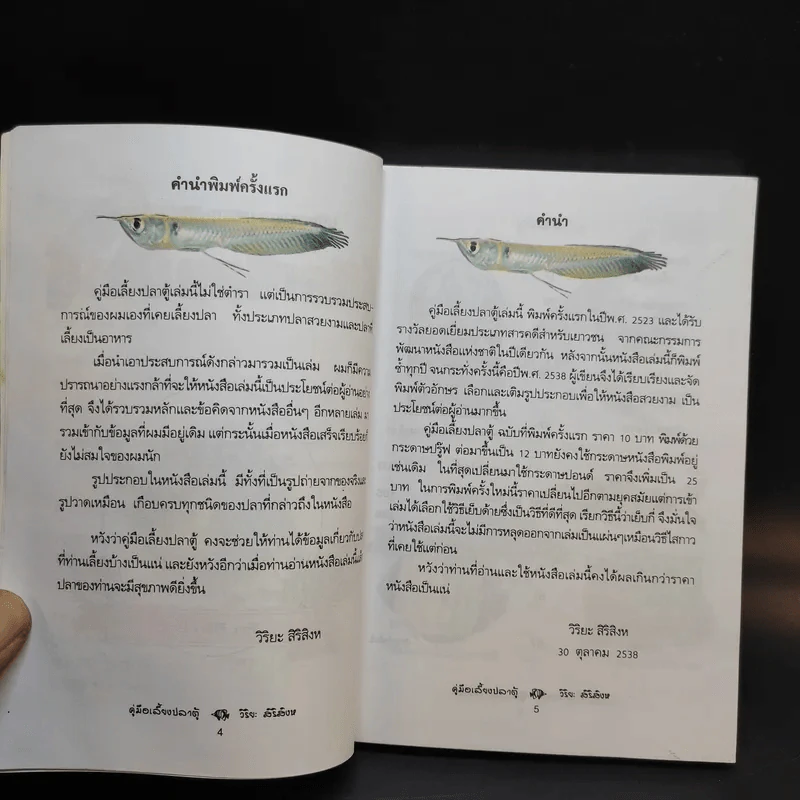 คำนำพิมพ์ครั้งแรก
คู่มือเลี้ยงปลาตู้เล่มนี้ไม่ใช่ตำรา แต่เป็นการรวบรวมประสบ-
การณ์ของผมเองที่เคยเลี้ยงปลา ทั้งประเภทปลาสวยงามและปลาที่
เลี้ยงเป็นอาหาร
เมื่อนำเอาประสบการณ์ดังกล่าวมารวมเป็นเล่ม ผมก็มีความ
ปรารถนาอย่างแรงกล้าที่จะให้หนังสือเล่มนี้เป็นประโยชน์ต่อผู้อ่านอย่าง
ที่สุด จึงได้รวบรวมหลักและข้อคิดจากหนังสืออื่นๆ อีกหลายเล่ม
รวมเข้ากับข้อมูลที่ผมมีอยู่เดิม แต่กระนั้นเมื่อหนังสือเสร็จเรียบร้อย
ยังไม่สมใจของผมนัก
รูปประกอบในหนังสือเล่มนี้ มีทั้งที่เป็นรูปถ่ายจากของจริงและ
รูปวาดเหมือน เกือบครบทุกชนิดของปลาที่กล่าวถึงในหนังสือ
หวังว่าคู่มือเลี้ยงปลาตู้ คงจะช่วยให้ท่านได้ข้อมูลเกี่ยวกับ
ที่ท่านเลี้ยงบ้างเป็นแน่ และยังหวังอีกว่าเมื่อท่านอ่านหนังสือเล่มนี้
ปลาของท่านจะมีสุขภาพดียิ่งขึ้น
วิริยะ สิริสิงห
คู่มือเลี้ยงปลาตู้ วิริยะ สิริสิงห
4
คำนำ
คู่มือเลี้ยงปลาตู้เล่มนี้ พิมพ์ครั้งแรกในปีพ.ศ. 2523 และได้รับ
รางวัลยอดเยี่ยมประเภทสารคดีสำหรับเยาวชน จากคณะกรรมการ
พัฒนาหนังสือแห่งชาติในปีเดียวกัน หลังจากนั้นหนังสือเล่มนี้ก็พิมพ์
ซ้ำทุกปี จนกระทั่งครั้งนี้คือปีพ.ศ. 2538 ผู้เขียนจึงได้เรียบเรียงและจัด
พิมพ์ตัวอักษร เลือกและเติมรูปประกอบเพื่อให้หนังสือสวยงาม เป็น
ประโยชน์ต่อผู้อ่านมากขึ้น
คู่มือเลี้ยงปลาตู้ ฉบับที่พิมพ์ครั้งแรก ราคา 10 บาท พิมพ์ด้วย
กระดาษปรู๊ฟ ต่อมาขึ้นเป็น 12 บาทยังคงใช้กระดาษหนังสือพิมพ์อยู่
เช่นเดิม ในที่สุดเปลี่ยนมาใช้กระดาษปอนด์ ราคาจึงเพิ่มเป็น 25
บาท ในการพิมพ์ครั้งใหม่นี้ราคาเปลี่ยนไปอีกตามยุคสมัยแต่การเข้า
เล่มได้เลือกใช้วิธีเย็บด้ายซึ่งเป็นวิธีที่ดีที่สุด เรียกวิธีนี้ว่าเย็บกี่ จึงมั่นใจ
ว่าหนังสือเล่มนี้จะไม่มีการหลุดออกจากเล่มเป็นแผ่นๆเหมือนวิธีไสกาว
ที่เคยใช้แต่ก่อน
หวังว่าท่านที่อ่านและใช้หนังสือเล่มนี้คงได้ผลเกินกว่าราคา
หนังสือเป็นแน่
วิริยะ สิริสิงห
30 ตุลาคม 2538
คู่มือเลี้ยงปลาตู้ วิริยะ สิริสิงห
5